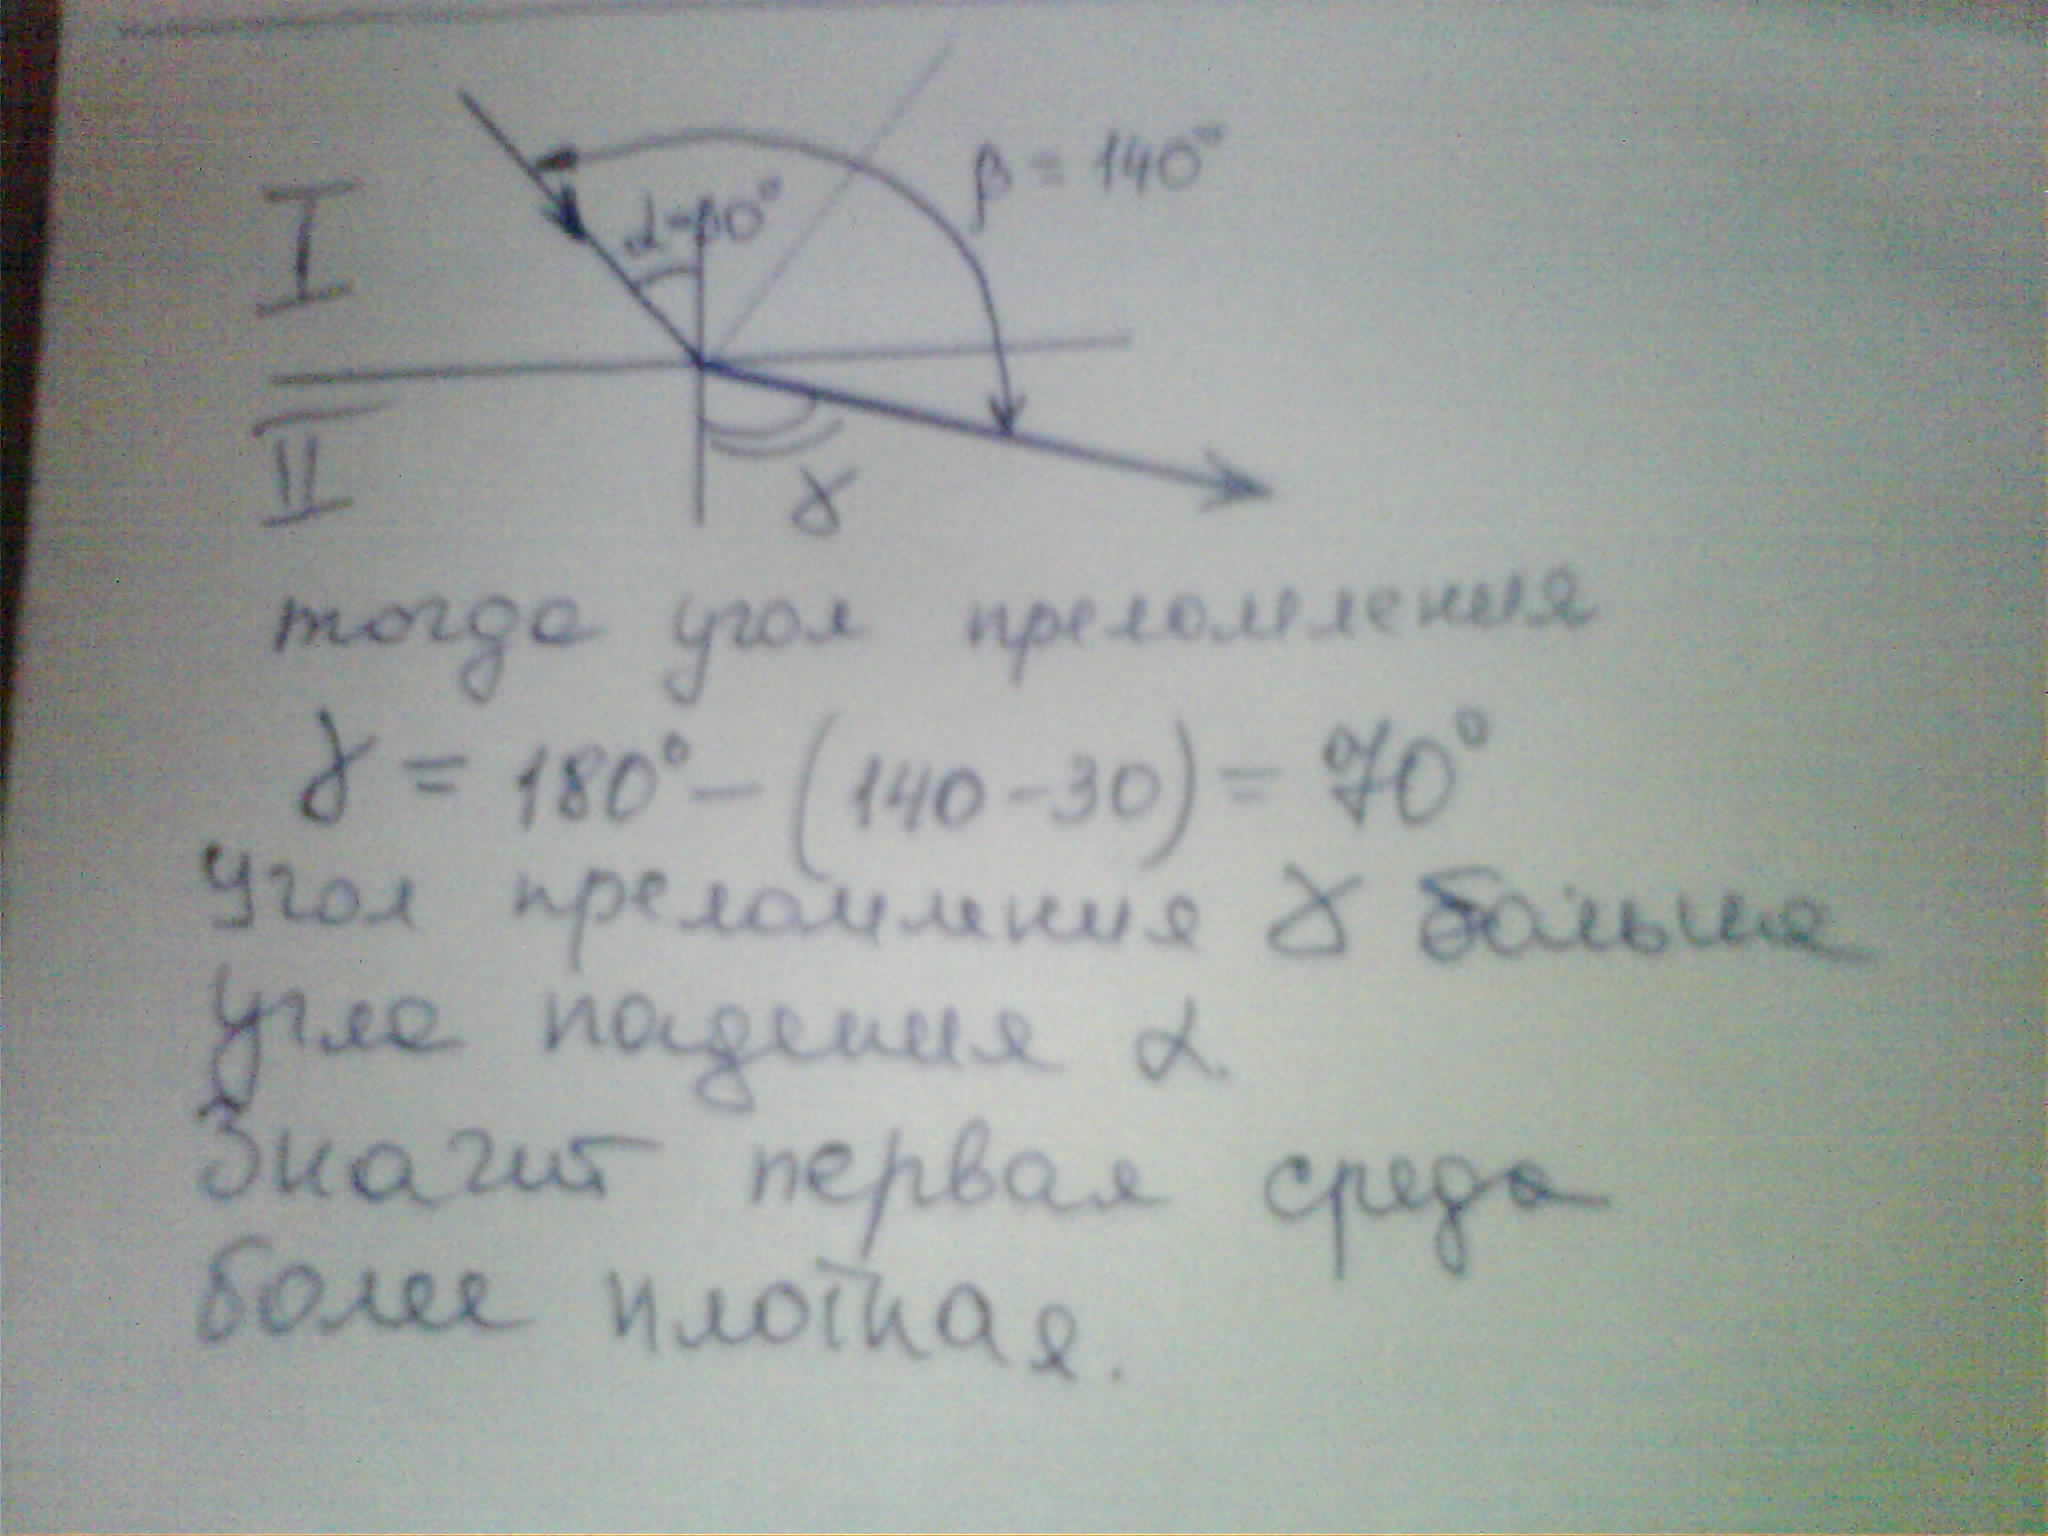 I
α=30°
β = 140°
II
γ
тогда угол преломления
γ = 180° - (140 - 30) = 70°
Угол преломления γ больше
угла падения α.
Значит первая среда
более плотная.